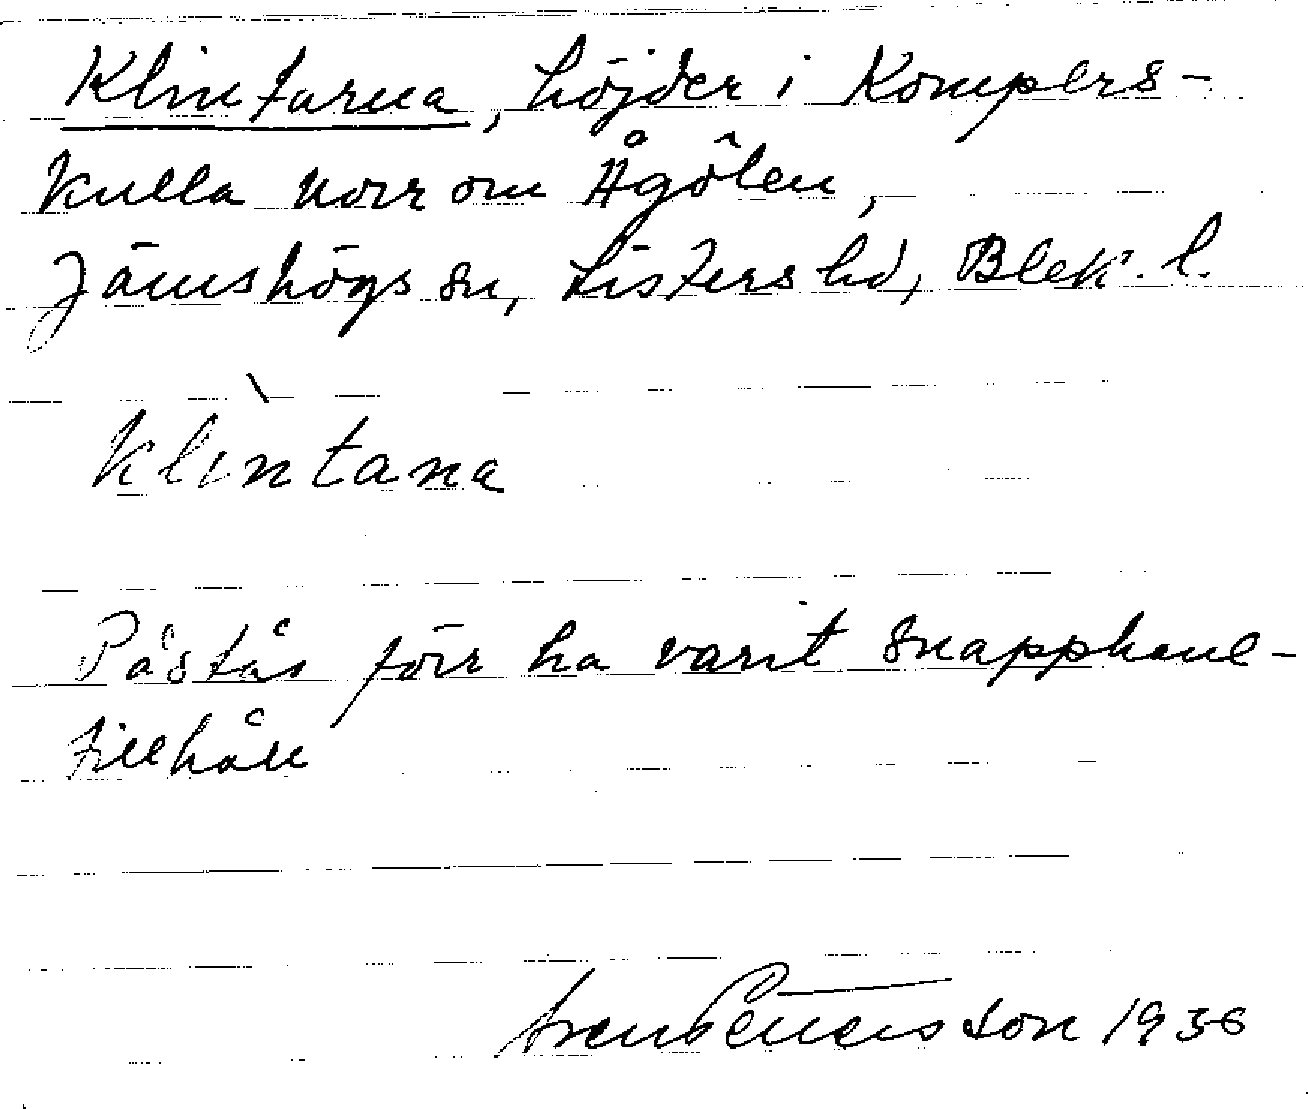 Klintarna, höjder i Kompers-
kulla norr om Ågölen,
Jämshögs sn, Listers hd, Blek. l.
klìntana
Påstås förr ha varit snapphane-
tillhåll
Sven Benson 1936